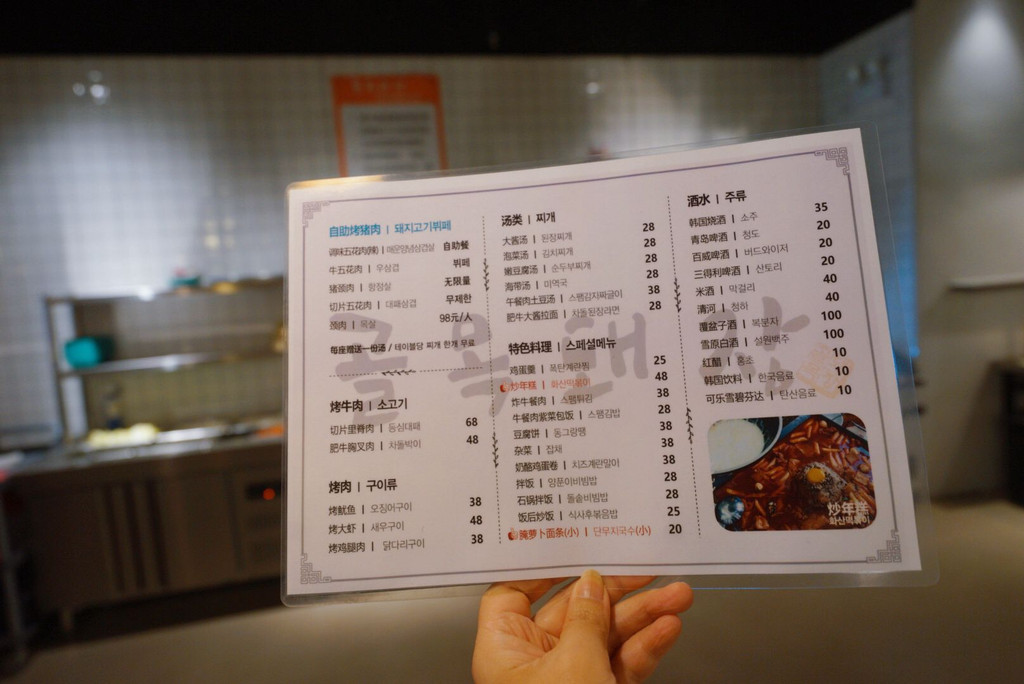 自助烤猪肉 | 돼지고기뷔페
调味五花肉(辣) | 매운양념삼겹살 自助餐
牛五花肉 | 우삼겹 뷔페
猪颈肉 | 항정살 无限量
切片五花肉 | 대패삼겹 무제한
颈肉 | 목살 98元/人
每座赠送一份汤 / 테이블당 찌개 한개 무료
烤牛肉 | 소고기
切片里脊肉 | 등심대패 68
肥牛胸叉肉 | 차돌박이 48
烤肉 | 구이류
烤鱿鱼 | 오징어구이 38
烤大虾 | 새우구이 48
烤鸡腿肉 | 닭다리구이 38
汤类 | 찌개
大酱汤 | 된장찌개 28
泡菜汤 | 김치찌개 28
嫩豆腐汤 | 순두부찌개 28
海带汤 | 미역국 28
午餐肉土豆汤 | 스팸감자짜글이 38
肥牛大酱拉面 | 차돌된장라면 28
特色料理 | 스페셜메뉴
鸡蛋羹 | 폭탄계란찜 25
炒年糕 | 화산떡볶이 48
炸牛餐肉 | 스팸튀김 38
牛餐肉紫菜包饭 | 스팸김밥 28
豆腐饼 | 동그랑땡 38
杂菜 | 잡채 38
奶酪鸡蛋卷 | 치즈계란말이 38
拌饭 | 양푼이비빔밥 28
石锅拌饭 | 돌솥비빔밥 28
饭后炒饭 | 식사후볶음밥 25
腌萝卜面条(小) | 단무지국수(小) 20
酒水 | 주류
韩国烧酒 | 소주 35
青岛啤酒 | 청도 20
百威啤酒 | 버드와이저 20
三得利啤酒 | 산토리 20
米酒 | 막걸리 40
清河 | 청하 40
覆盆子酒 | 복분자 100
雪原白酒 | 설원백주 100
红醋 | 홍초 10
韩国饮料 | 한국음료 10
可乐雪碧芬达 | 탄산음료 10
炒年糕
화산떡볶이